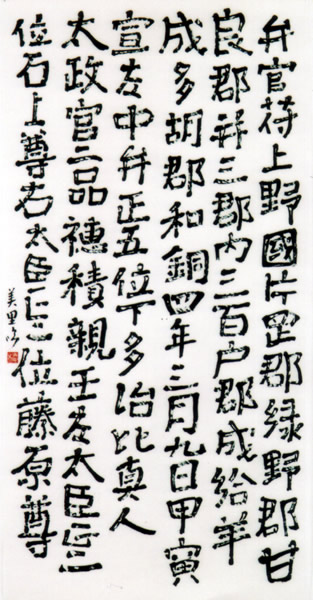 弁官苻上野國片罡郡緑野郡甘
良郡并三郡内三百戸郡成給羊
成多胡郡和銅四年三月九日甲寅
宣左中弁正五位下多治比真人
太政官二品穂積親王左太臣正二
位石上尊右太臣正二位藤原尊
美里